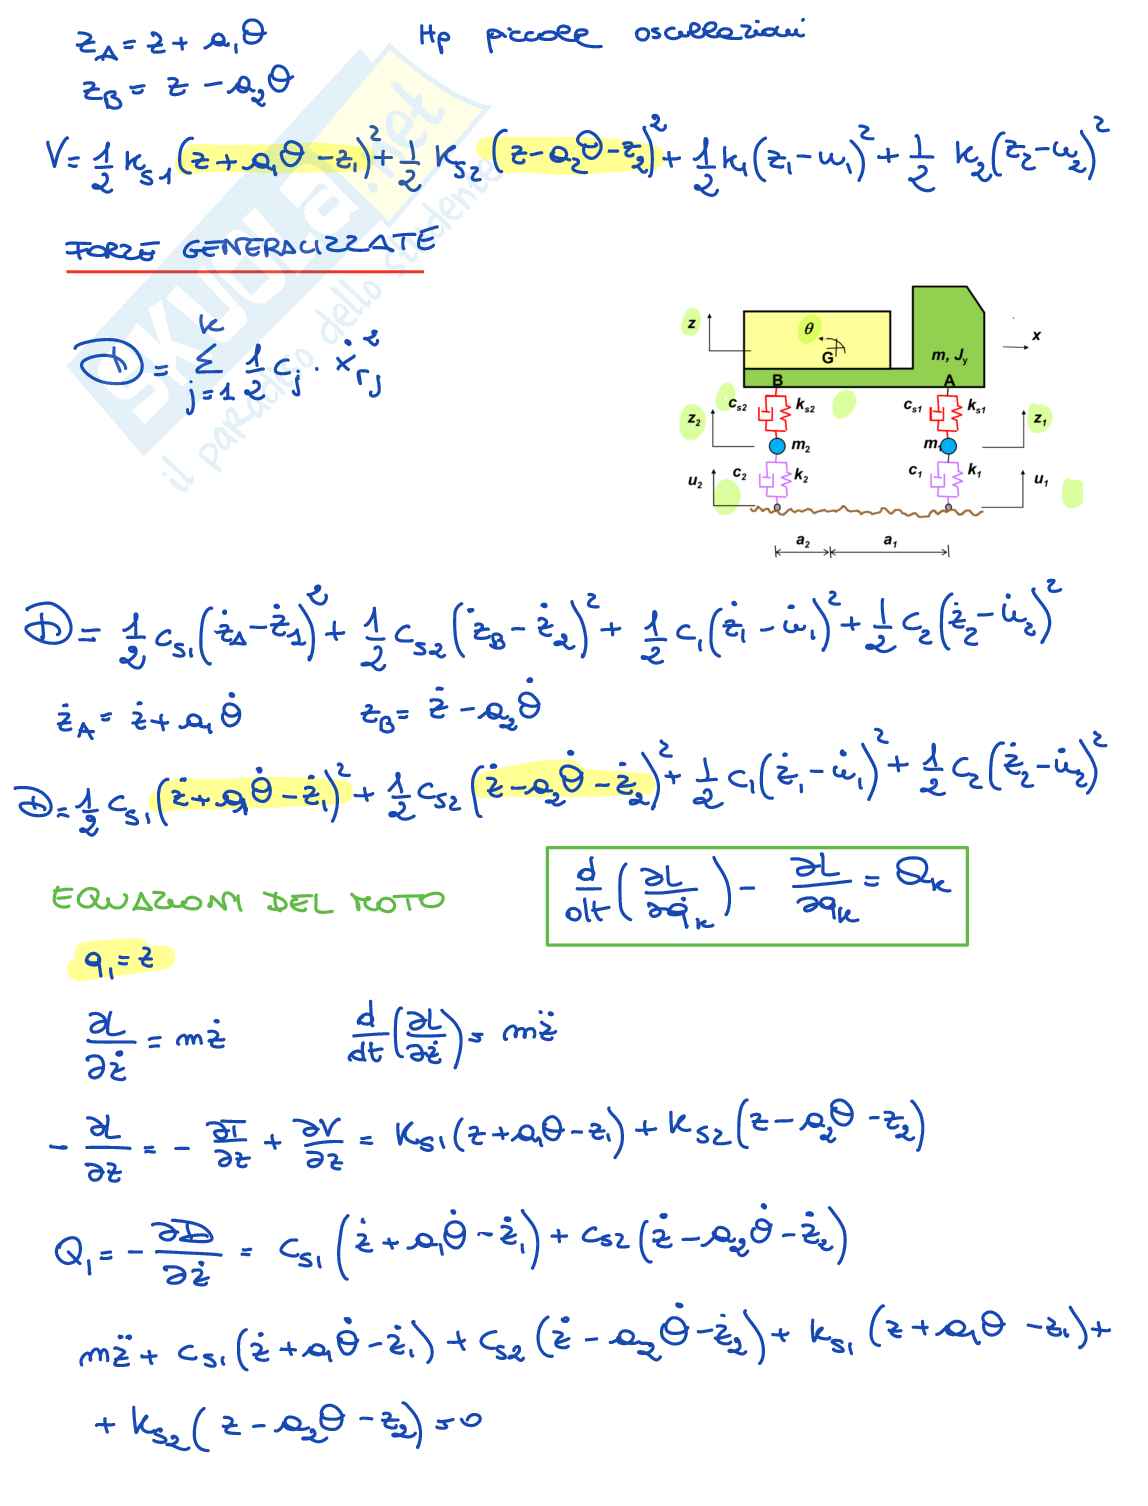 z_A = z + a_1θ   Hp piccole oscillazioni
z_B = z − a_2θ
V = 1/2 k_s1 (z + a_1θ − z_1)^2 + 1/2 k_s2 (z − a_2θ − z_2)^2 + 1/2 k_1 (z_1 − u_1)^2 + 1/2 k_2 (z_2 − u_2)^2
FORZE GENERALIZZATE
SKUOLA.net
il paradiso dello studente
D = Σ_{j=1}^{k} 1/2 c_j · ẋ_rj^2
z   θ   G   m, J_y   x
B   A
c_s2   k_s2   c_s1   k_s1
z_2   m_2   m_1   z_1
u_2   c_2   k_2   c_1   k_1   u_1
a_2   a_1
D = 1/2 c_s1 (ż_A − ż_1)^2 + 1/2 c_s2 (ż_B − ż_2)^2 + 1/2 c_1 (ż_1 − u̇_1)^2 + 1/2 c_2 (ż_2 − u̇_2)^2
ż_A = ż + a_1θ̇   z_B = ż − a_2θ̇
D = 1/2 c_s1 (ż + a_1θ̇ − ż_1)^2 + 1/2 c_s2 (ż − a_2θ̇ − ż_2)^2 + 1/2 c_1 (ż_1 − u̇_1)^2 + 1/2 c_2 (ż_2 − u̇_2)^2
EQUAZIONI DEL MOTO   d/dt (∂L/∂q̇_k) − ∂L/∂q_k = Q_k
q_1 = z
∂L/∂ż = mż   d/dt (∂L/∂ż) = mz̈
− ∂L/∂z = − ∂T/∂z + ∂V/∂z = k_s1 (z + a_1θ − z_1) + k_s2 (z − a_2θ − z_2)
Q_1 = − ∂D/∂ż = c_s1 (ż + a_1θ̇ − ż_1) + c_s2 (ż − a_2θ̇ − ż_2)
mz̈ + c_s1 (ż + a_1θ̇ − ż_1) + c_s2 (ż − a_2θ̇ − ż_2) + k_s1 (z + a_1θ − z_1) +
+ k_s2 (z − a_2θ − z_2) = 0